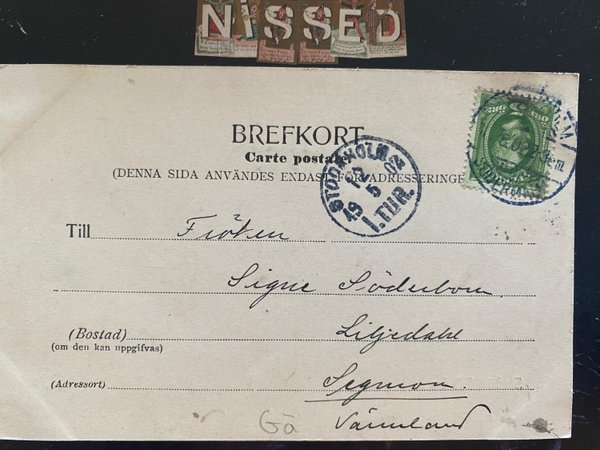 NISSED
BREFKORT
Carte postale
(DENNA SIDA ANVÄNDES ENDAST FÖR ADRESSERINGE
STOCKHOLM
1. TUR.
Till Fröken
Signe Söderbom
(Bostad) Liljedahl
(om den kan uppgifvas)
(Adressort) Segmon
Värmland
Gä